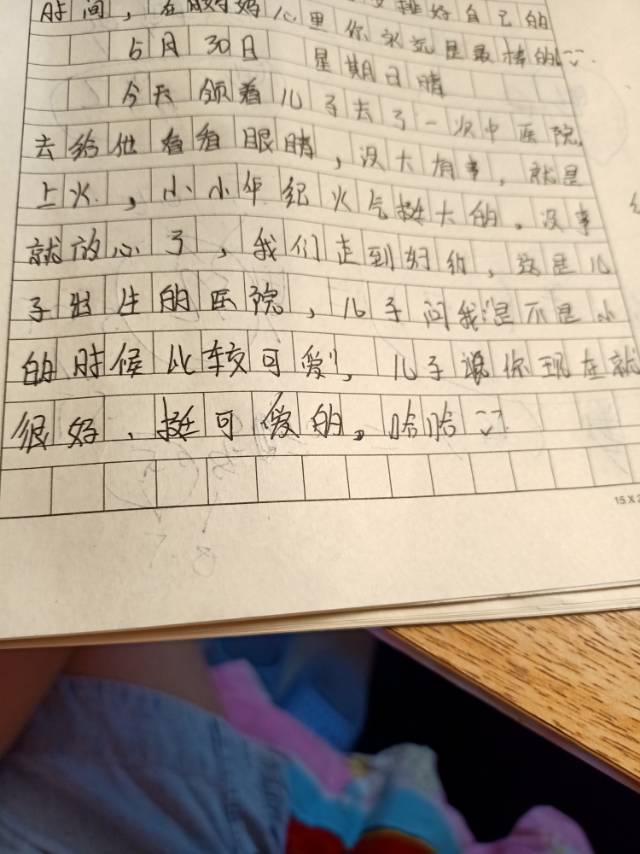 时间，在妈妈心里你永远是最棒的
排好自己的
5月30日 星期日晴
今天领着儿子去了一次中医院，
去给他看看眼睛，没大有事，就是
上火，小小年纪火气挺大的。没事
就放心了，我们走到妇幼，这是儿
子出生的医院，儿子问我：是不是小
的时候比较可爱！，儿子说你现在就
很好、挺可爱的。哈哈
15×2